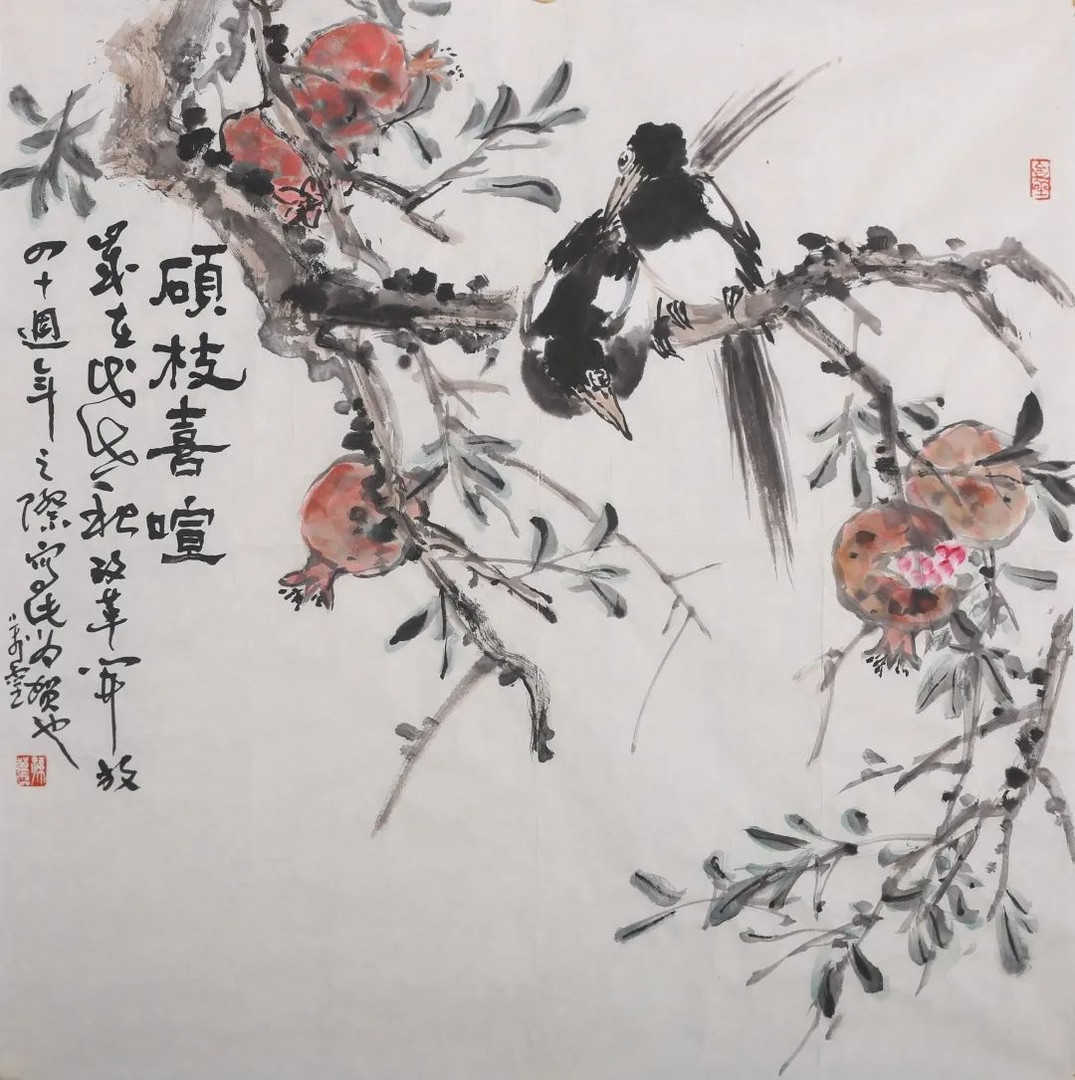 碩枝喜喧
歲在戊戌秋改革開放
四十週年之際寫此為賀也